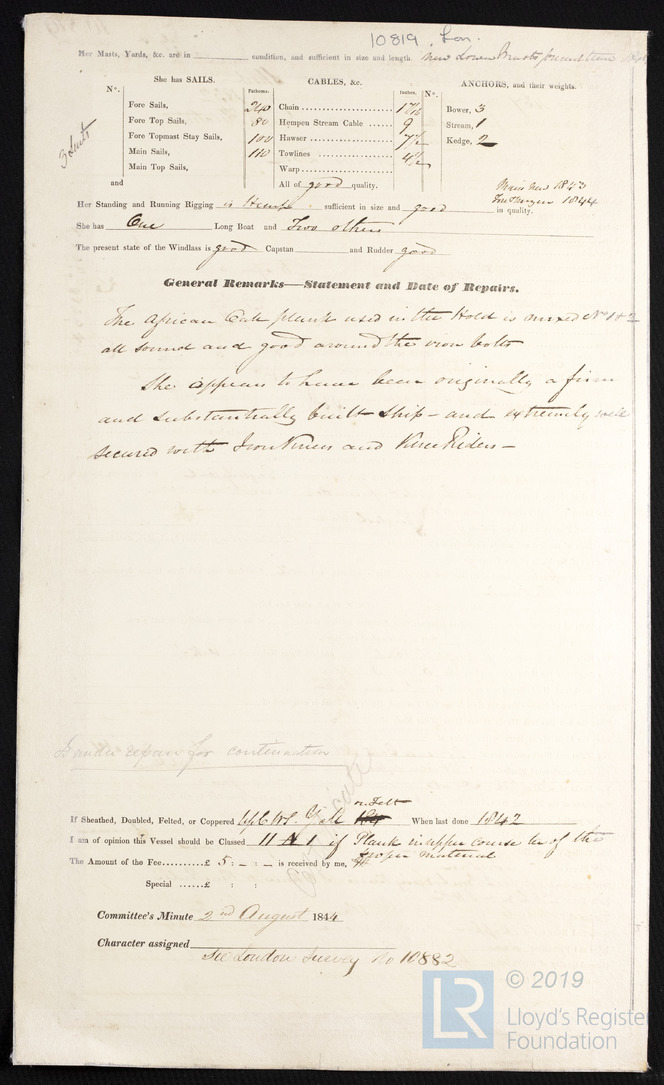 10819 Lon.
Her Masts, Yards, &c. are in condition, and sufficient in size and length. New Lower Masts
She has SAILS.
CABLES, &c.
ANCHORS, and their weights.
N°.
Fathoms.
Inches.
N°.
3 Suits
Fore Sails,
Fore Top Sails,
Fore Topmast Stay Sails,
Main Sails,
Main Top Sails,
and
240 Chain 1 7/16
80 Hempen Stream Cable 9
100 Hawser 7½
110 Towlines 4½
Warp
All of good quality.
Bower, 3
Stream, 1
Kedge, 2
Main new 1843
1844
Her Standing and Running Rigging is Hemp sufficient in size and good in quality.
She has One Long Boat and Two others
The present state of the Windlass is good Capstan and Rudder good
General Remarks—Statement and Date of Repairs.
The African Oak plank used in the Hold is mixed N° 1 & 2
all sound and good around the iron bolts
She appears to have been originally a firm
and substantially built ship – and extremely well
secured with Iron Knees and Knee Riders –
under repair for continuation
If Sheathed, Doubled, Felted, or Coppered Y. on Felt When last done 1842
I am of opinion this Vessel should be Classed 11 A 1 if Plank in upper course be of the
proper material
The Amount of the Fee..........£ 5 : – : – is received by me,
Special ......£ : :
Committee's Minute 2nd August 1844
Character assigned
See London Survey No 10882
LR
© 2019
Lloyd's Register
Foundation